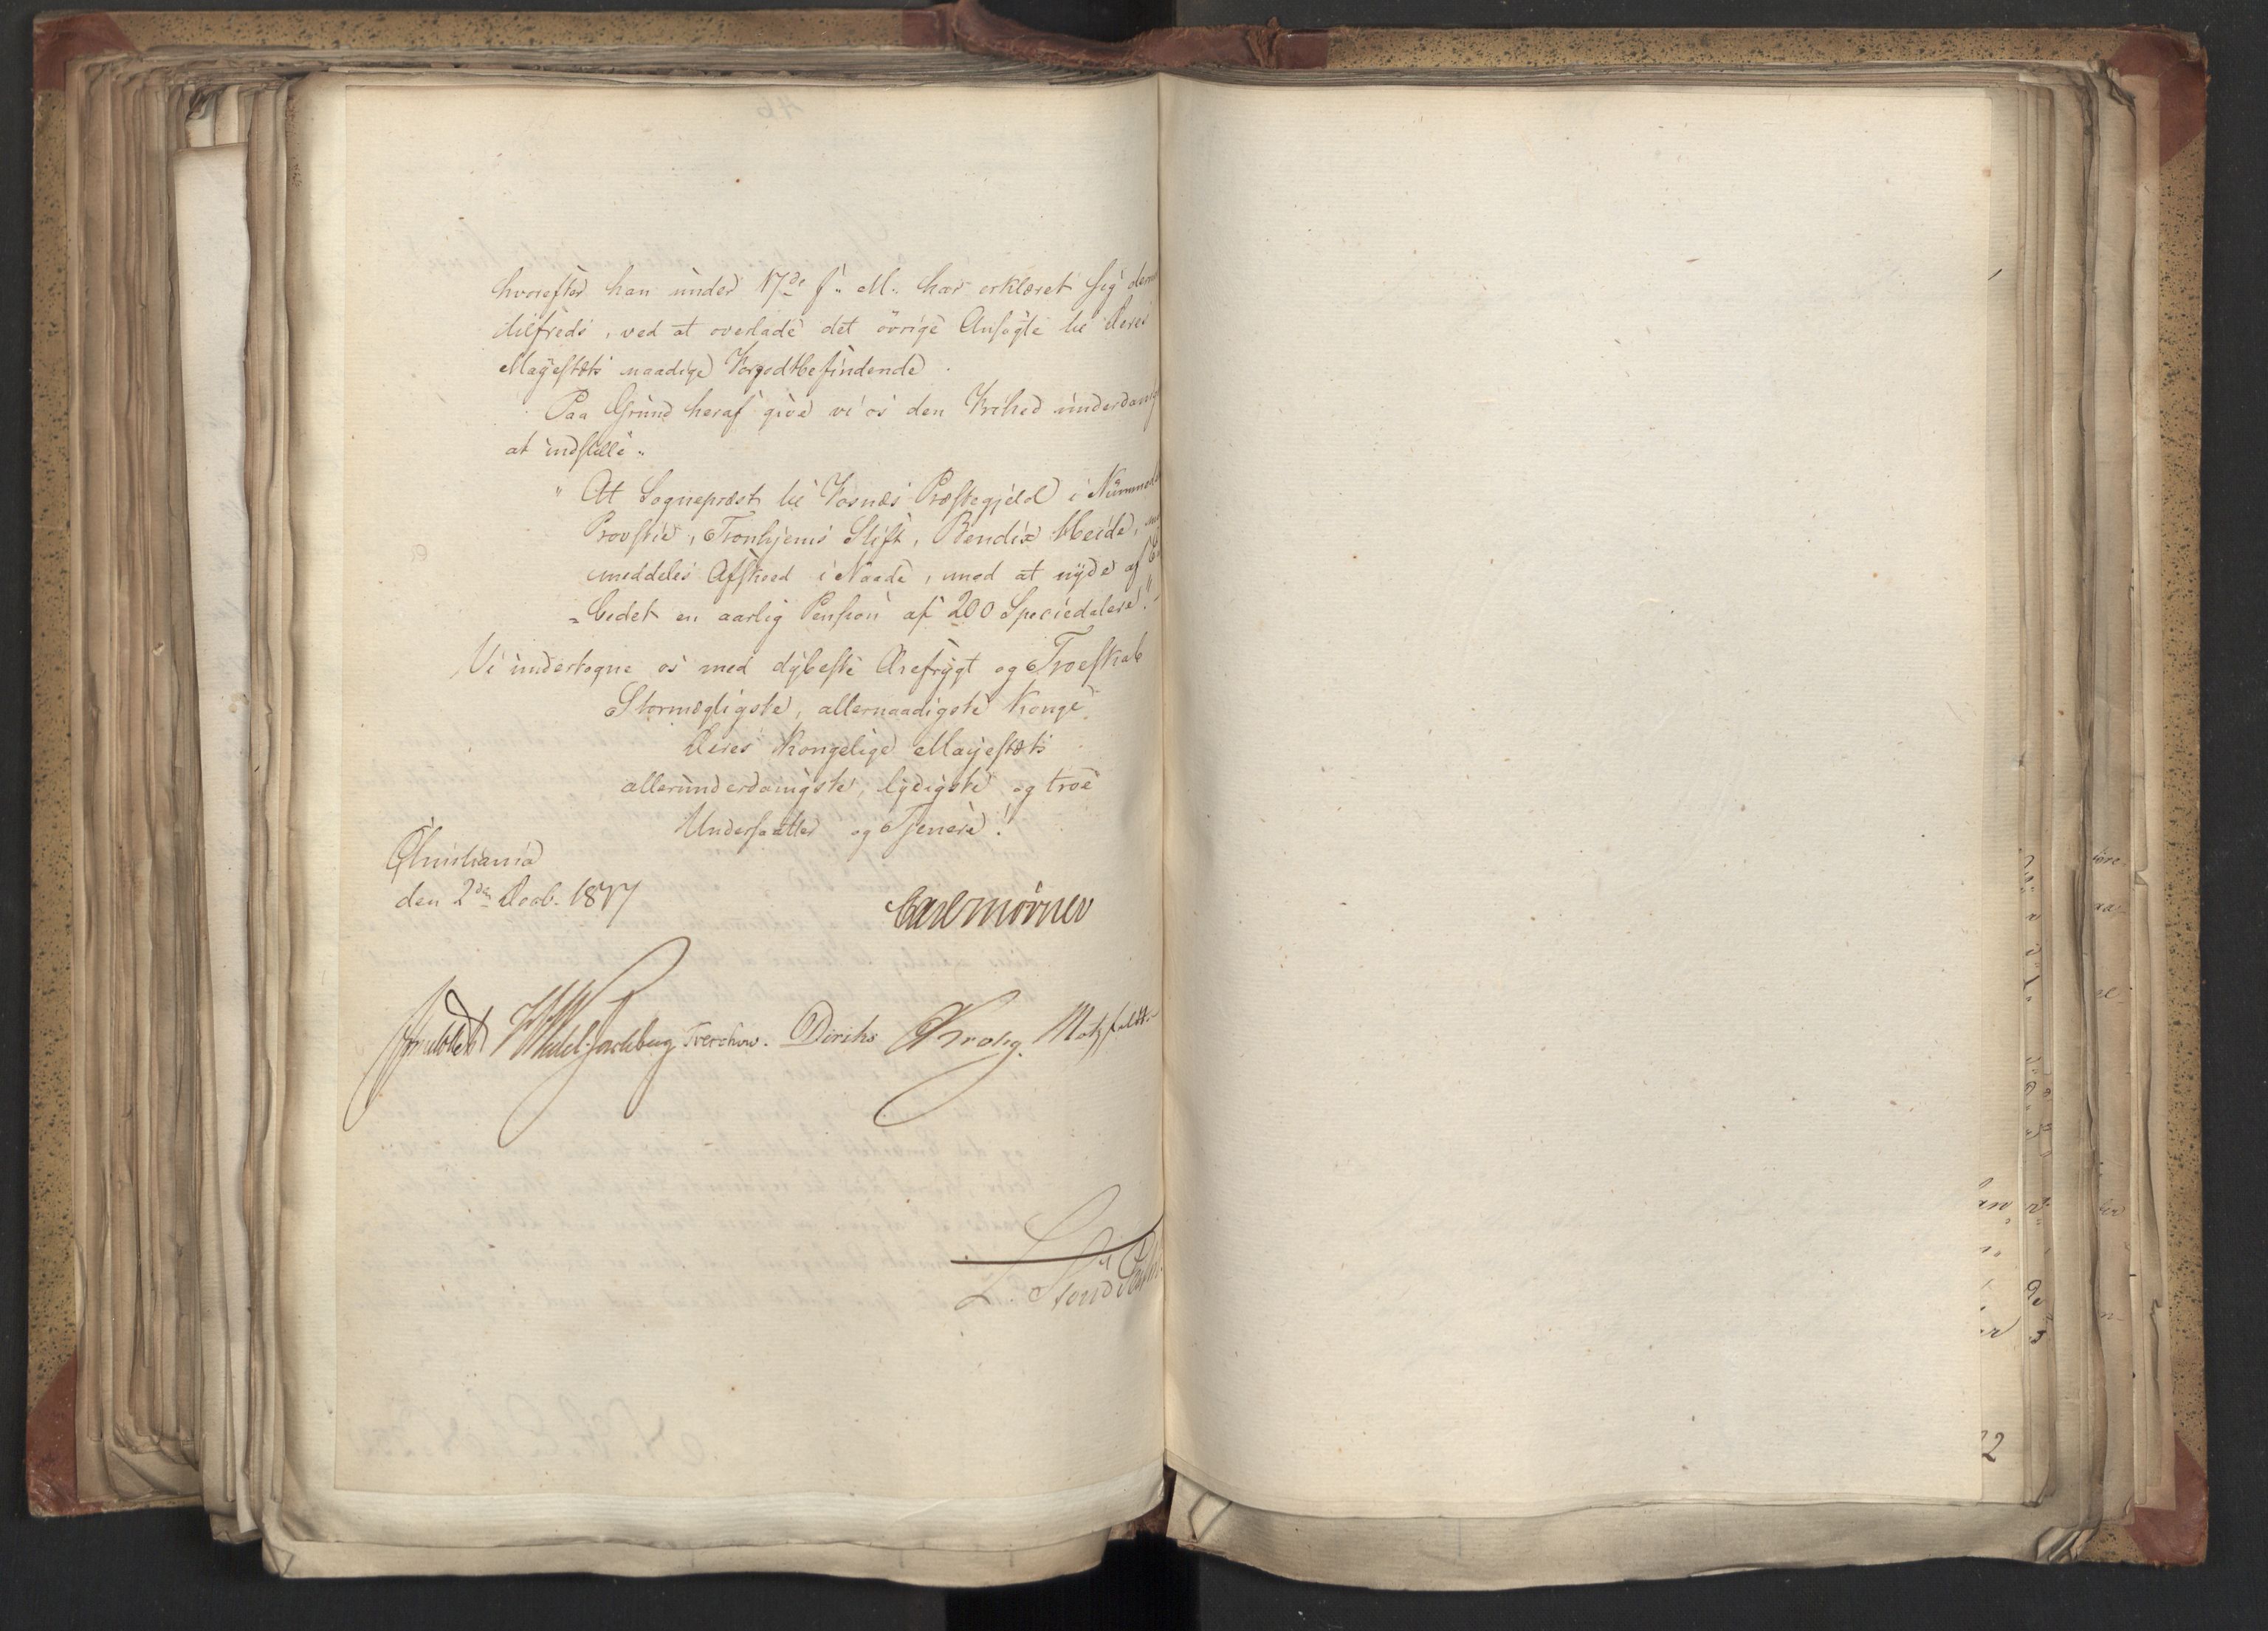 hvorefter han under 17de f. M. har erklæret sig
tilfreds, ved at overlade det övrige Ansögte til Deres
Majestæts naadige Forgodtbefindende.
Paa Grund heraf give vi os den Frihed underdanig
at indstille:
"At Sognepræst til Fosnæs Præstegjeld i
Provstie, Tronhjems Stift, Bendix Heide,
meddeles Afskeed i Naade, med at nyde af
"bedet en aarlig Pension af 200 Speciedalere."
Vi undertegne os med dýbeste Ærefrygt og Troeskab
Stormægtigste, allernaadigste Konge
Deres Kongelige Majestæts
allerunderdanigste, lydigste og troe
Undersaatter og Tjenere!
Christiania
den 2den Decb. 1817
Carl Mörner
Sommerhielm WWedel Jarlsberg Treschow. Diriks Krohg. Motzfeldt
L. Stoud Platou
22